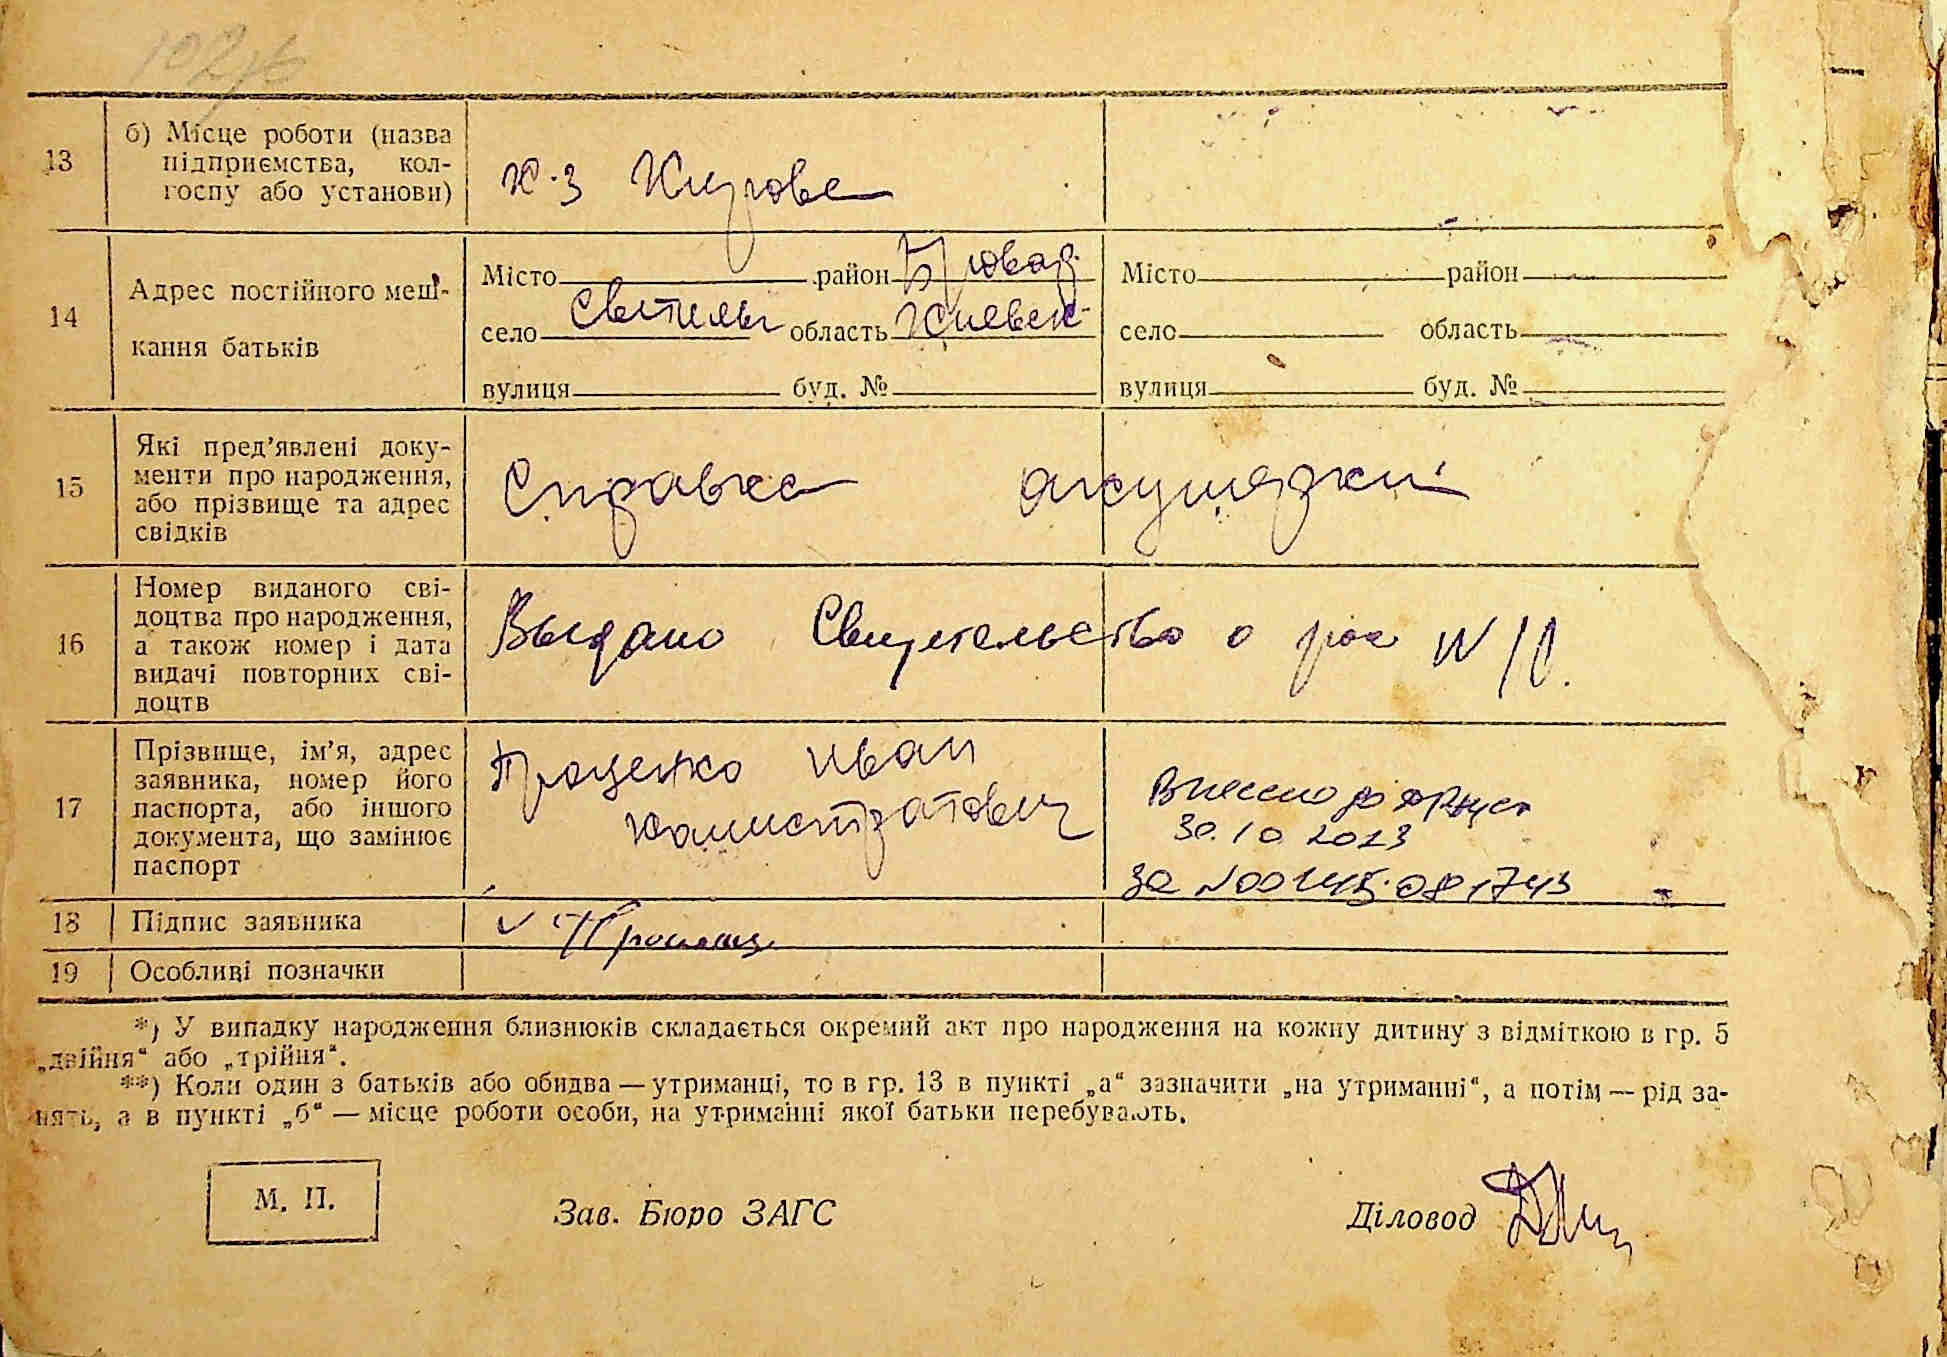 13 б) Місце роботи (назва
підприємства, кол-
госпу або установи)
к-з Кирова
14 Адрес постійного меш-
кання батьків
Місто район Бровар. Місто район
село Светильн область Киевск. село область
вулиця буд. № вулиця буд. №
15 Які пред'явлені доку-
менти про народження,
або прізвище та адрес
свідків
Справка акушерки
16 Номер виданого сві-
доцтва про народження,
а також номер і дата
видачі повторних сві-
доцтв
Выдано Свидетельство о рож
17 Прізвище, ім'я, адрес
заявника, номер його
паспорта, або іншого
документа, що замінює
паспорт
Проценко Иван
Калистратович
Внесено до
30.10.2023
за
18 Підпис заявника
19 Особливі позначки
*) У випадку народження близнюків складається окремий акт про народження на кожну дитину з відміткою в гр. 5
„двійня“ або „трійня“.
**) Коли один з батьків або обидва — утриманці, то в гр. 13 в пункті „а“ зазначити „на утриманні“, а потім — рід за-
нять, а в пункті „б“ — місце роботи особи, на утриманні якої батьки перебувають.
М. П. Зав. Бюро ЗАГС Діловод